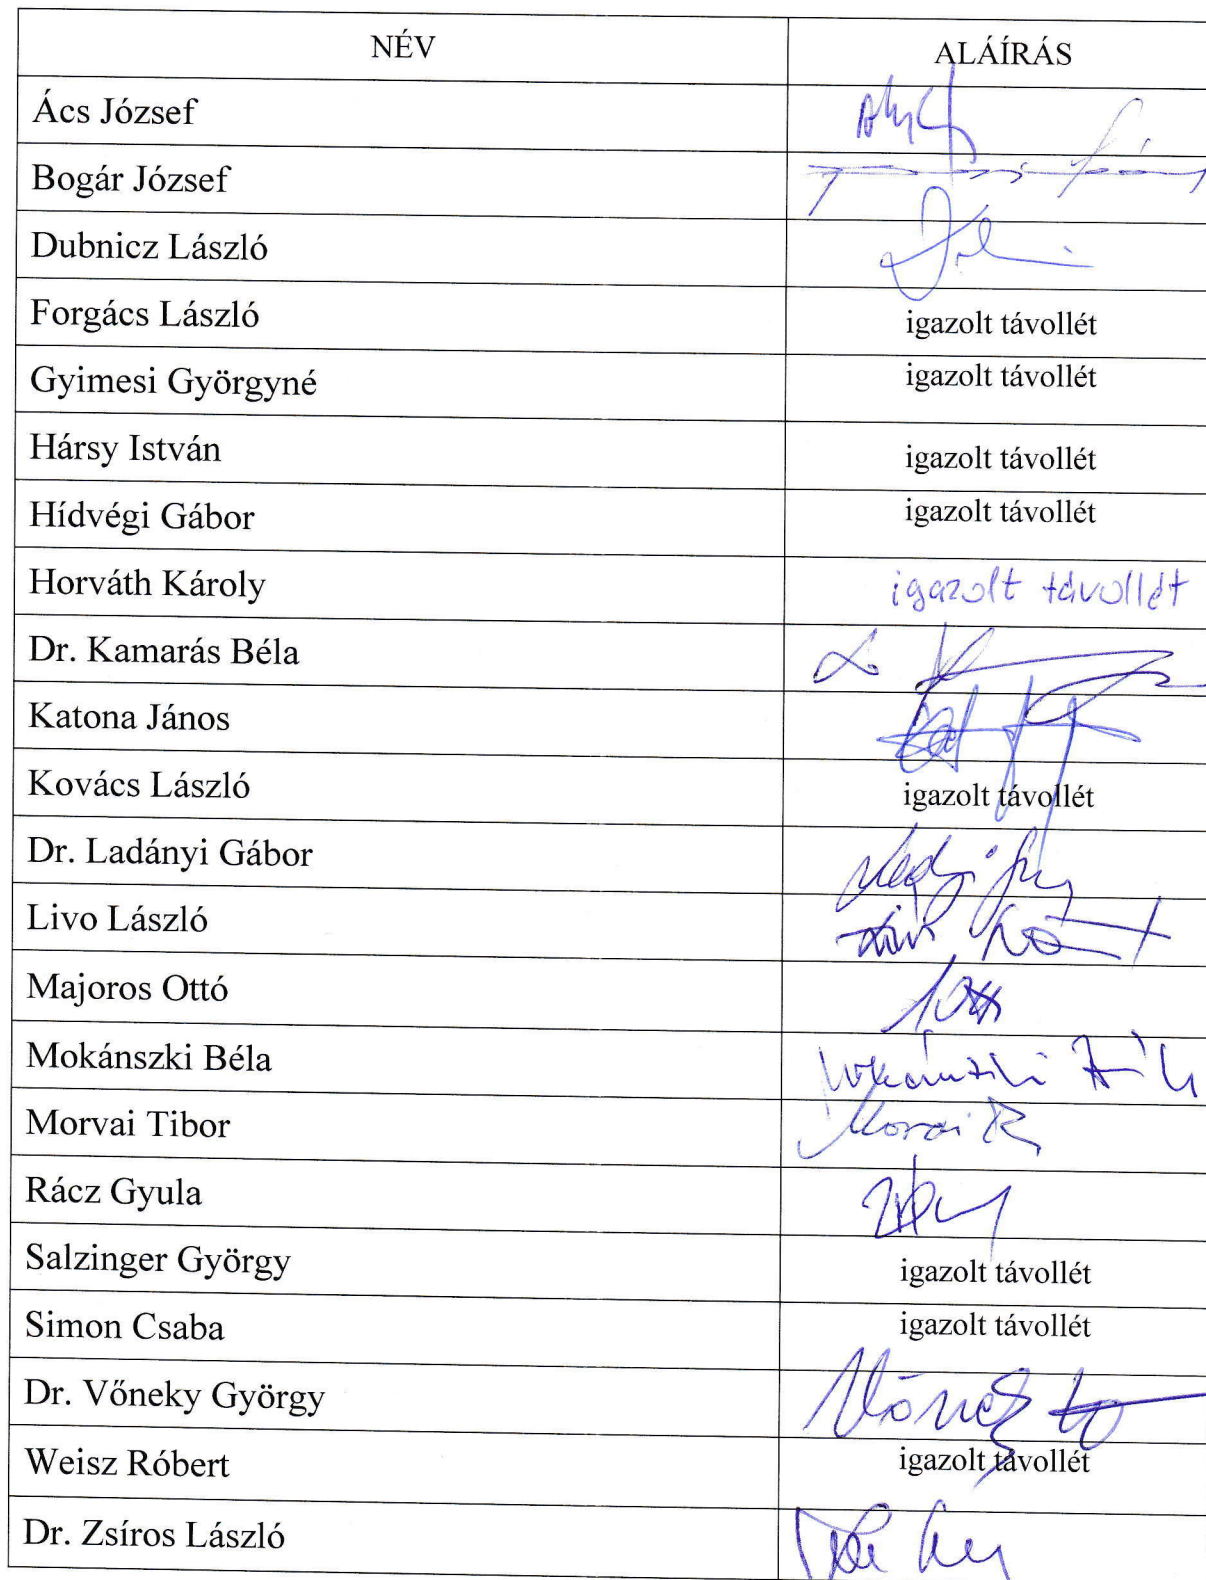 NÉV ALÁÍRÁS
Ács József
Bogár József
Dubnicz László
Forgács László igazolt távollét
Gyimesi Györgyné igazolt távollét
Hársy István igazolt távollét
Hídvégi Gábor igazolt távollét
Horváth Károly igazolt távollét
Dr. Kamarás Béla
Katona János
Kovács László igazolt távollét
Dr. Ladányi Gábor
Livo László
Majoros Ottó
Mokánszki Béla
Morvai Tibor
Rácz Gyula
Salzinger György igazolt távollét
Simon Csaba igazolt távollét
Dr. Vőneky György
Weisz Róbert igazolt távollét
Dr. Zsíros László